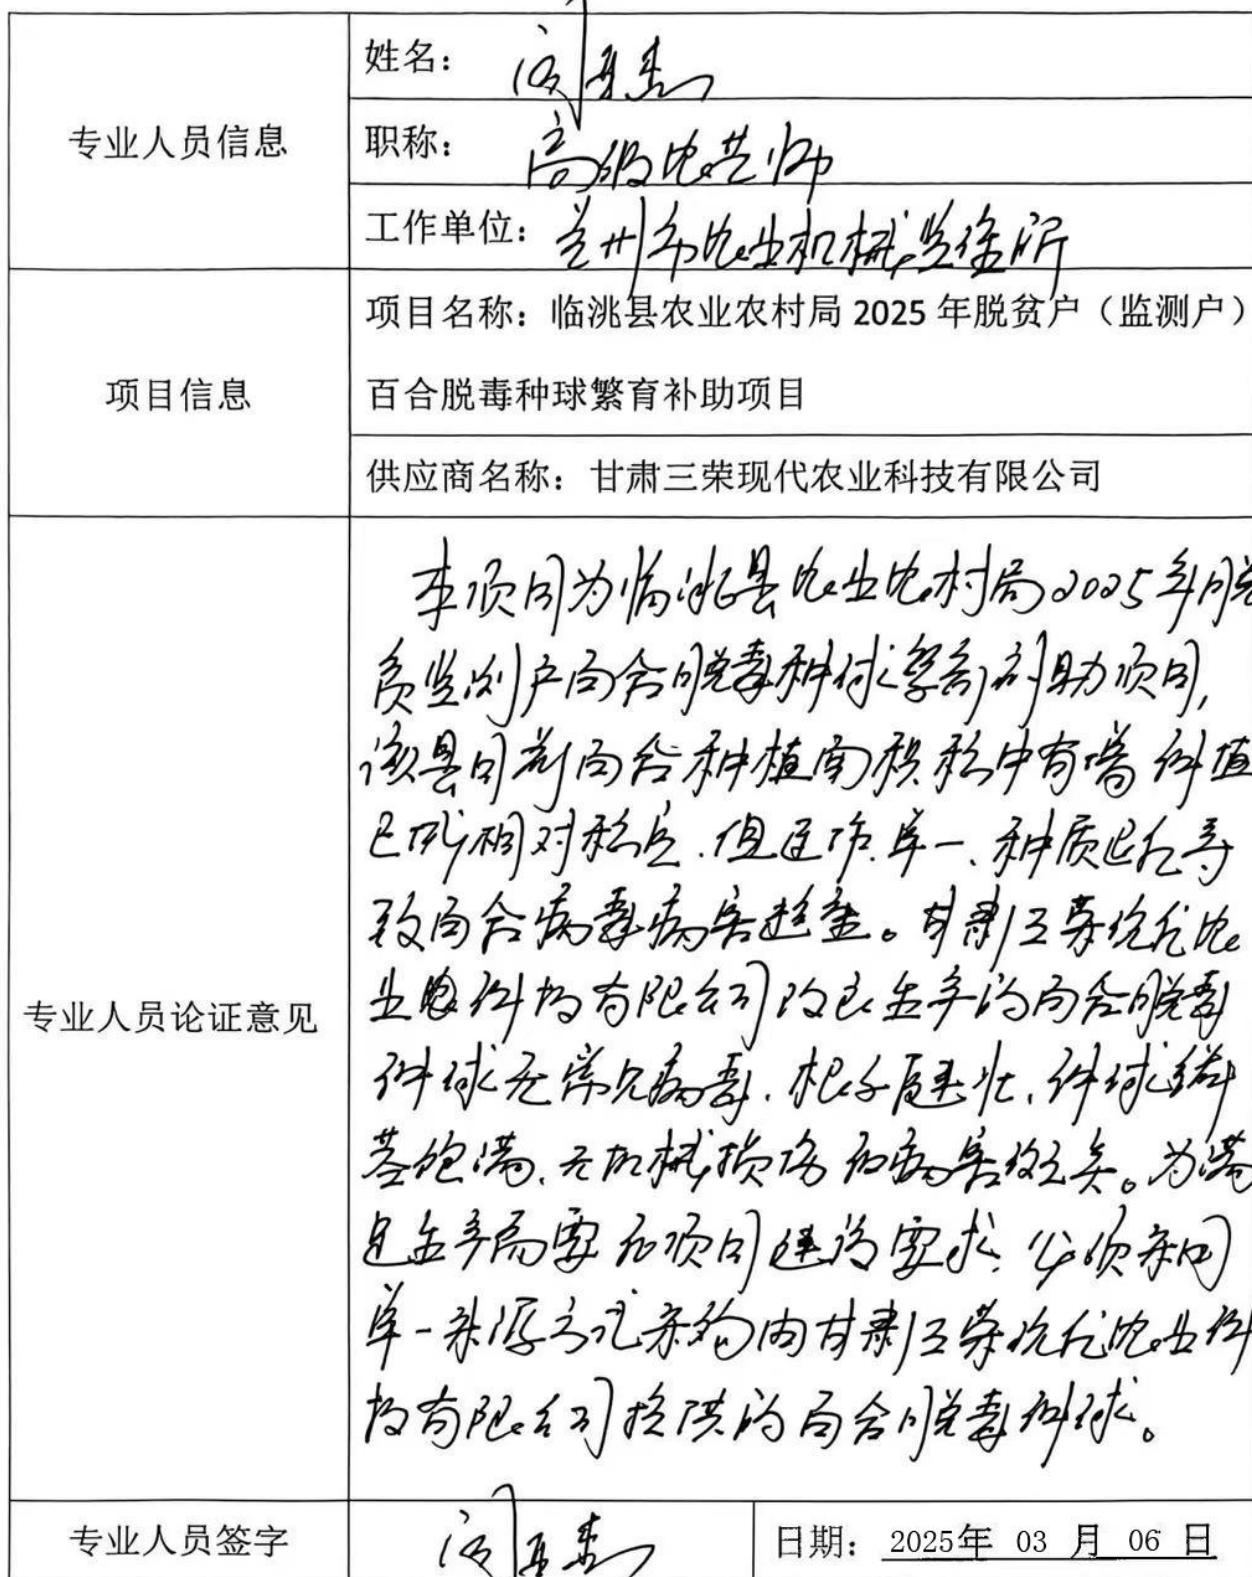 专业人员信息
姓名：
职称：高级农艺师
工作单位：兰州市农业机械监理所
项目信息
项目名称：临洮县农业农村局 2025 年脱贫户（监测户）
百合脱毒种球繁育补助项目
供应商名称：甘肃三荣现代农业科技有限公司
专业人员论证意见
本项目为临洮县农业农村局2025年脱
贫监测户百合脱毒种球繁育补助项目，
该县目前百合种植面积稳中有增 种植
已成相对稳定．但连作．单一、种质退化导
致百合病毒病害趋重。甘肃三荣现代农
业科技有限公司 生产的百合脱毒
种球无常见病毒．根系健壮．种球鳞
茎饱满、无机械损伤和病害 。为满
足生产需要和项目建设要求，必须采用
单一来源方式采购由甘肃三荣现代农业科
技有限公司提供的百合脱毒种球。
专业人员签字
日期： 2025年 03 月 06 日